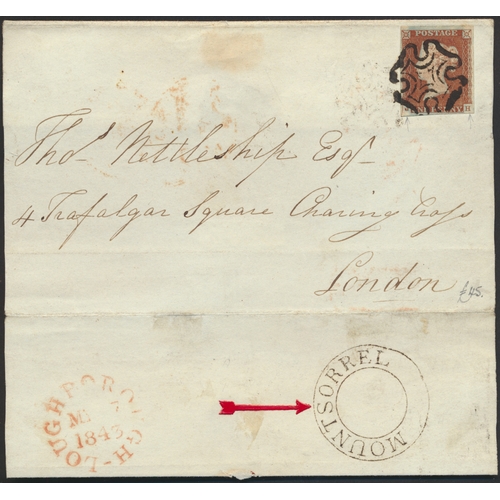 POSTAGE
Thos. Nettleship Esqr
4 Trafalgar Square Charing Cross
London
£45.
LOUGHBOROUGH
1843
MOUNTSORREL